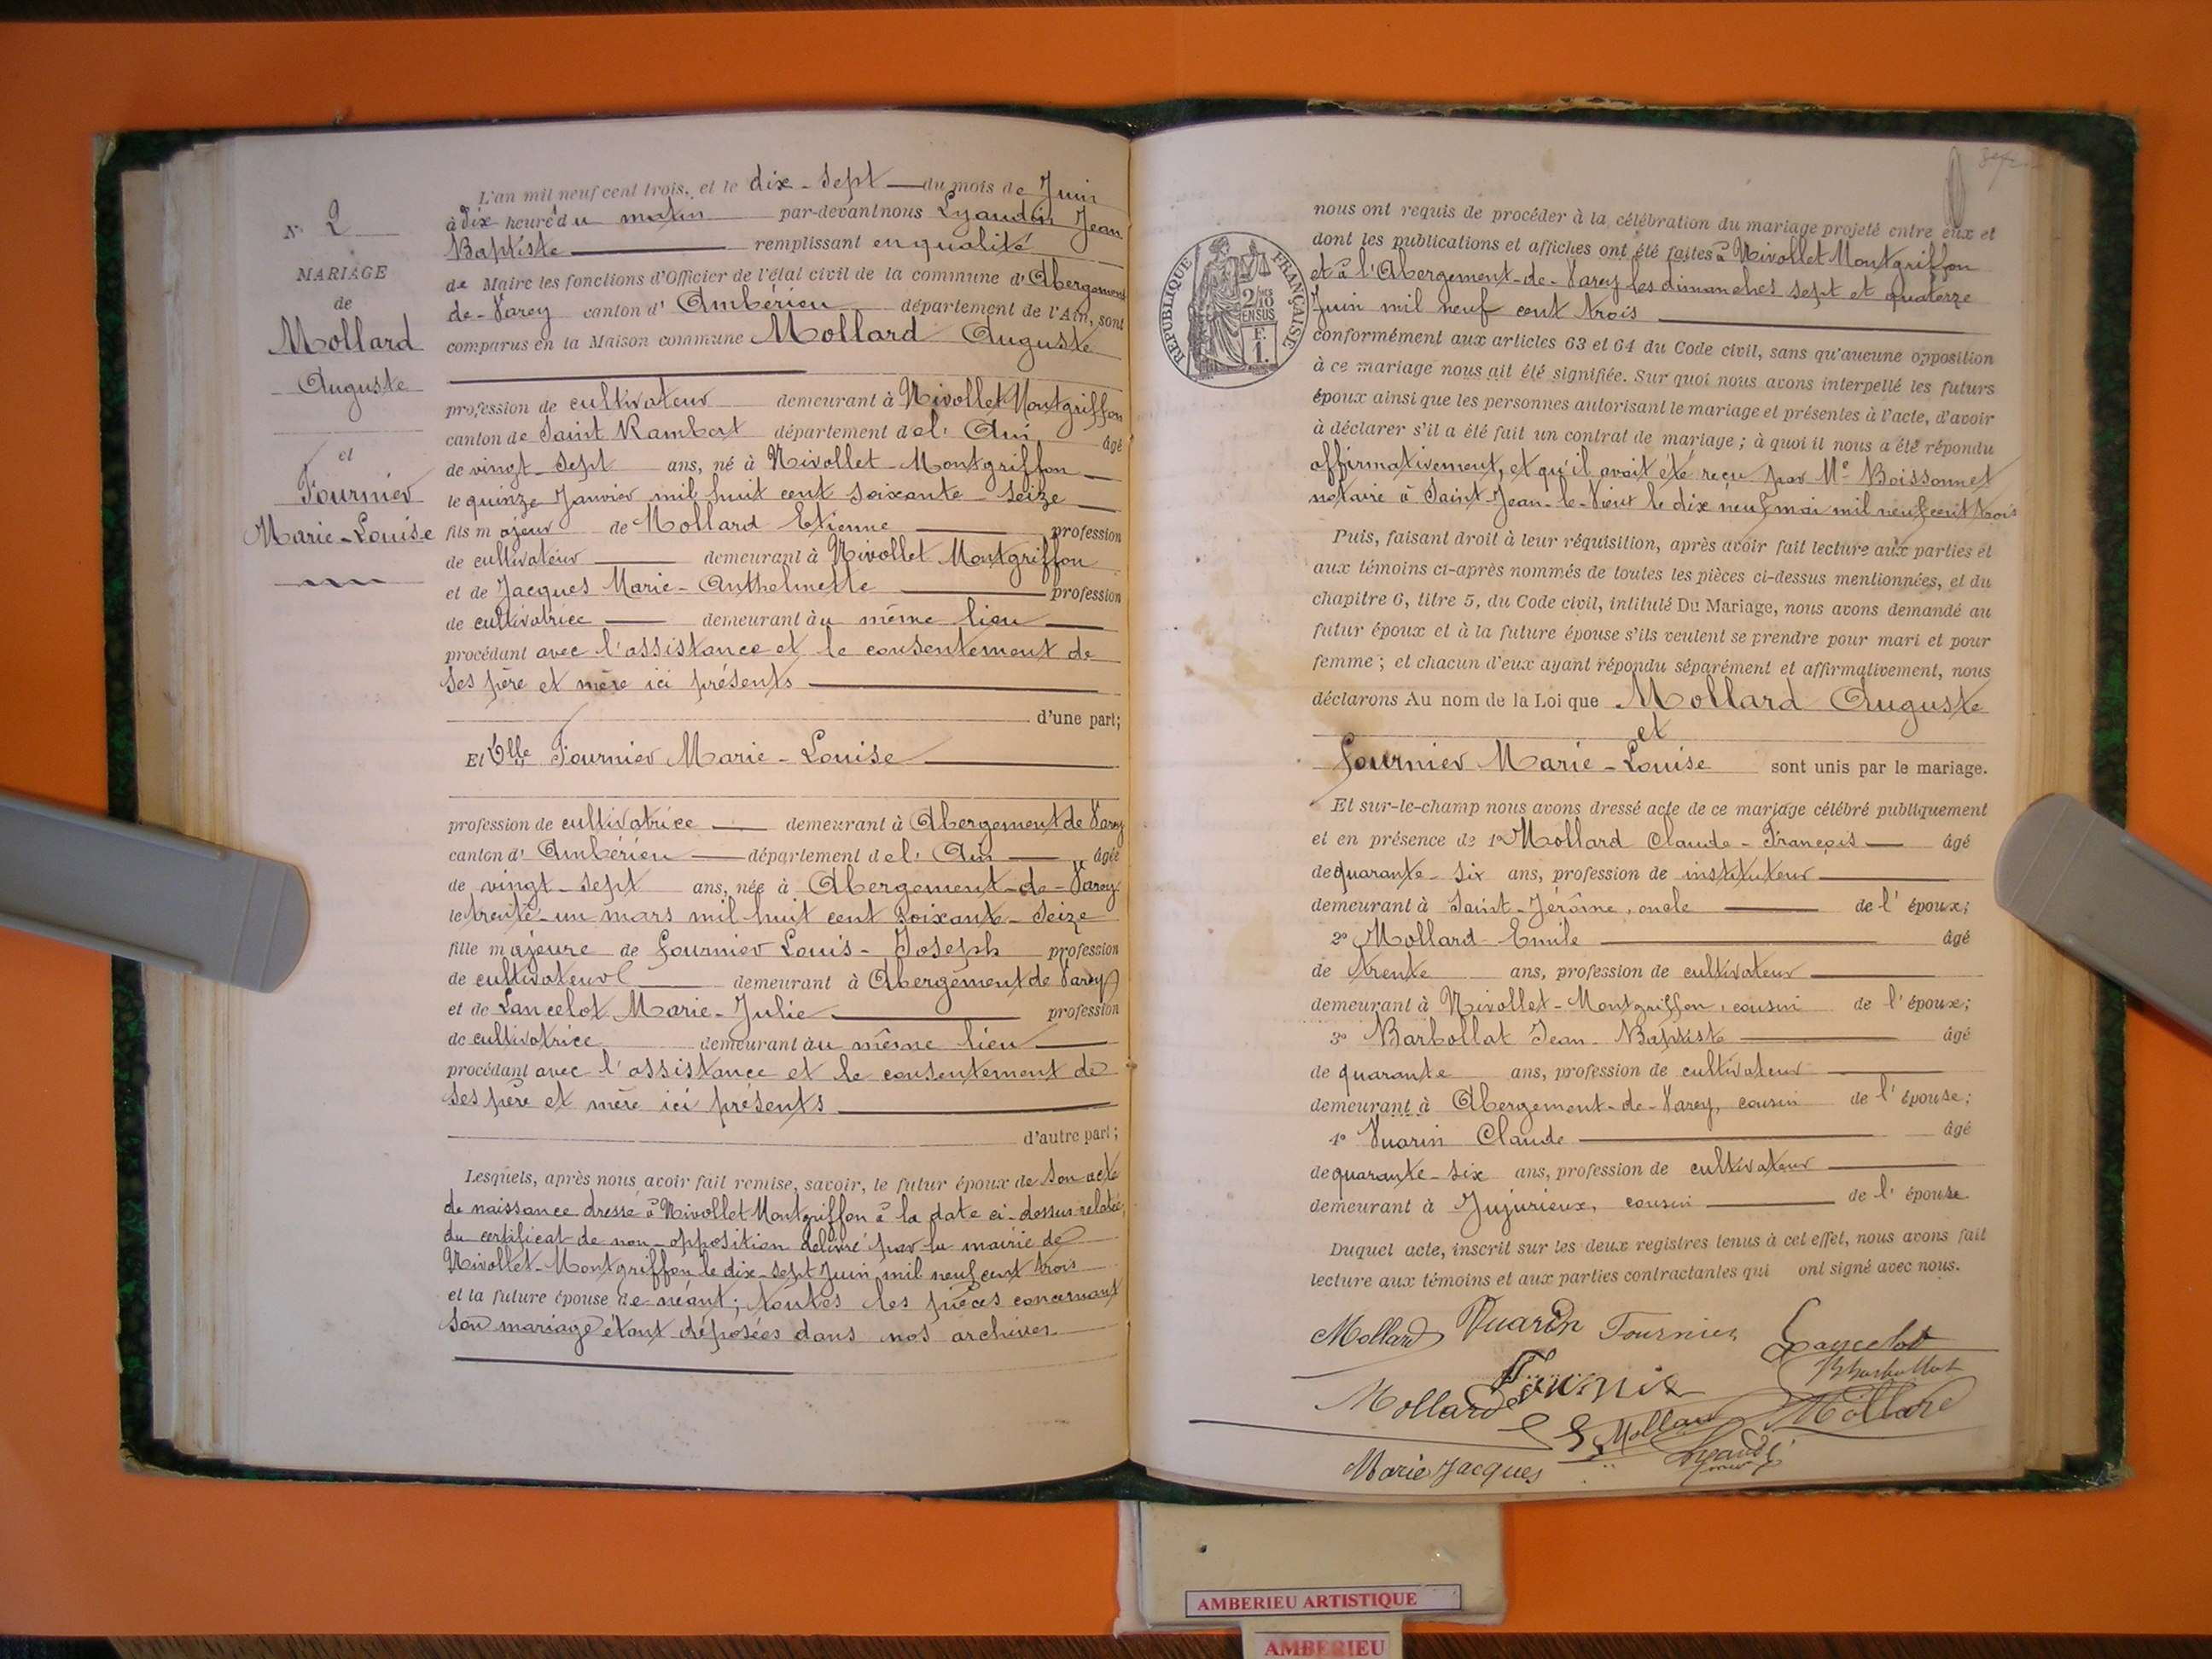 N° 2
MARIAGE
de
Mollard
Auguste
et
Fournier
Marie-Louise
L'an mil neuf cent trois, et le dix-sept du mois de Juin
à dix heure du matin par-devant nous Lyaudin Jean
Baptiste remplissant en qualité
de Maire les fonctions d'Officier de l'état civil de la commune d'Abergement
de-Varey canton d' Ambérieu département de l'Ain, sont
comparus en la Maison commune Mollard Auguste
profession de cultivateur demeurant à Nivollet Montgriffon
canton de Saint Rambert département de l' Ain âgé
de vingt-sept ans, né à Nivollet-Montgriffon
le quinze Janvier mil huit cent soixante-seize
fils majeur de Mollard Etienne profession
de cultivateur demeurant à Nivollet Montgriffon
et de Jacques Marie-Anthelmette profession
de cultivatrice demeurant au même lieu
procédant avec l'assistance et le consentement de
ses père et mère ici présents
d'une part;
Et Dlle Fournier Marie-Louise
profession de cultivatrice demeurant à Abergement de Varey
canton d' Ambérieu département de l' Ain âgée
de vingt-sept ans, née à Abergement-de-Varey
le trente-un mars mil huit cent soixante-seize
fille majeure de Fournier Louis-Joseph profession
de cultivateur demeurant à Abergement de Varey
et de Lancelot Marie-Julie profession
de cultivatrice demeurant au même lieu
procédant avec l'assistance et le consentement de
ses père et mère ici présents
d'autre part;
Lesquels, après nous avoir fait remise, savoir, le futur époux de son acte
de naissance dressé à Nivollet Montgriffon à la date ci-dessus relatée,
du certificat de non-opposition délivré par la mairie de
Nivollet-Montgriffon le dix-sept Juin mil neuf cent trois
et la future épouse de néant; toutes les pièces concernant
son mariage étant déposées dans nos archives
RÉPUBLIQUE FRANÇAISE
2/10 EN SUS
F.
1.
nous ont requis de procéder à la célébration du mariage projeté entre eux et
dont les publications et affiches ont été faites à Nivollet Montgriffon
et à l'Abergement-de-Varey les dimanches sept et quatorze
Juin mil neuf cent trois
conformément aux articles 63 et 64 du Code civil, sans qu'aucune opposition
à ce mariage nous ait été signifiée. Sur quoi nous avons interpellé les futurs
époux ainsi que les personnes autorisant le mariage et présentes à l'acte, d'avoir
à déclarer s'il a été fait un contrat de mariage; à quoi il nous a été répondu
affirmativement, et qu'il avait été reçu par Me Boissonnet
notaire à Saint-Jean-le-Vieux le dix neuf mai mil neuf cent trois
Puis, faisant droit à leur réquisition, après avoir fait lecture aux parties et
aux témoins ci-après nommés de toutes les pièces ci-dessus mentionnées, et du
chapitre 6, titre 5, du Code civil, intitulé Du Mariage, nous avons demandé au
futur époux et à la future épouse s'ils veulent se prendre pour mari et pour
femme; et chacun d'eux ayant répondu séparément et affirmativement, nous
déclarons Au nom de la Loi que Mollard Auguste
et
Fournier Marie-Louise sont unis par le mariage.
Et sur-le-champ nous avons dressé acte de ce mariage célébré publiquement
et en présence de 1° Mollard Claude-François âgé
de quarante-six ans, profession de instituteur
demeurant à Saint-Jérôme, oncle de l' époux;
2° Mollard Emile âgé
de trente ans, profession de cultivateur
demeurant à Nivollet-Montgriffon, cousin de l' époux;
3° Barbollat Jean-Baptiste âgé
de quarante ans, profession de cultivateur
demeurant à Abergement-de-Varey, cousin de l' épouse;
4° Vuarin Claude âgé
de quarante-six ans, profession de cultivateur
demeurant à Jujurieux, cousin de l' épouse
Duquel acte, inscrit sur les deux registres tenus à cet effet, nous avons fait
lecture aux témoins et aux parties contractantes qui ont signé avec nous.
Mollard Vuarin Fournier Lancelot
Barbollat
Mollard Fournie Mollard Mollard
Marie Jacques
AMBERIEU ARTISTIQUE
AMBERIEU